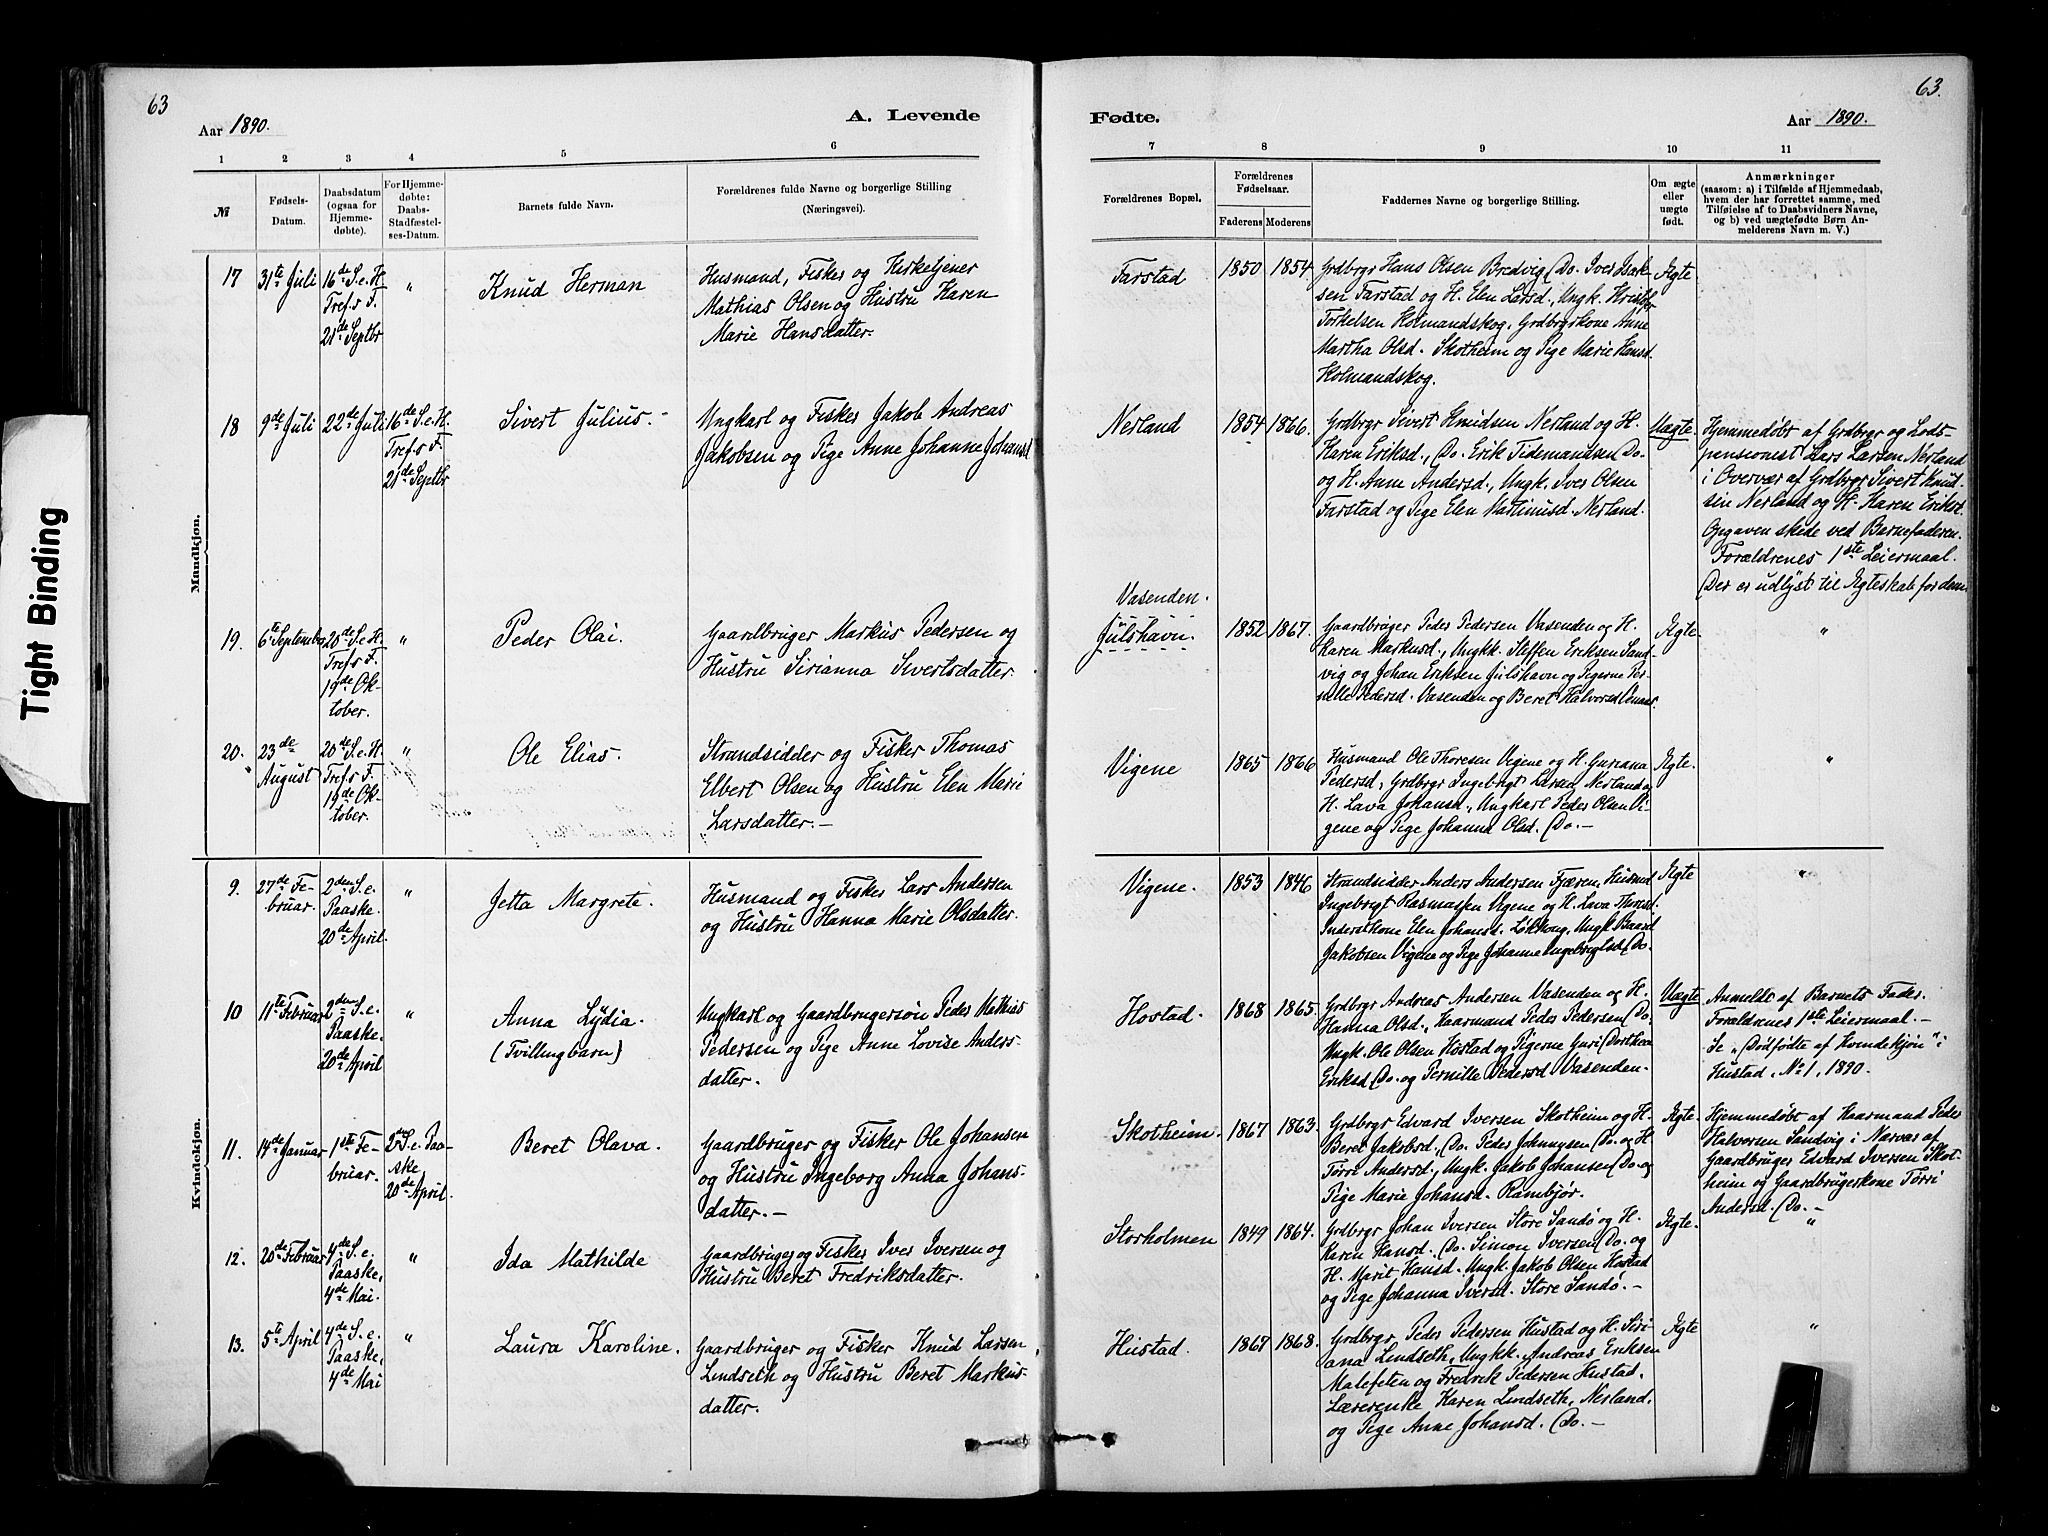 63
63.
Aar 1890.
A. Levende
Fødte.
Aar 1890.
1 2 3 4 5 6 7 8 9 10 11
№
Fødsels-
Datum.
Daabsdatum
(ogsaa for
Hjemme-
døbte).
For Hjemme-
døbte:
Daabs-
Stadfæstel-
ses-Datum.
Barnets fulde Navn.
Forældrenes fulde Navne og borgerlige Stilling
(Næringsvei).
Forældrenes Bopæl.
Forældrenes
Fødselsaar.
Faderens Moderens
Faddernes Navne og borgerlige Stilling.
Om ægte
eller
uægte
født.
Anmærkninger
(saasom: a) i Tilfælde af Hjemmedaab,
hvem der har forrettet samme, med
Tilføielse af to Daabsvidners Navne,
og b) ved uægtefødte Børn An-
melderens Navn m. V.)
Mandkjøn.
17
31te Juli
16de S. e. H.
Tref.s F.
21de Septbr
"
Knud Herman
Husmand, Fisker og Kirketjener
Mathias Olsen og Hustru Karen
Marie Hansdatter.
Farstad
1850 1854
Grdbrgr Hans Olsen Bredvig, Do. Iver Isak-
sen Farstad og H. Elen Larsd., Ungk. Kristofr
Torkelsen Holmandskog, Grdbrgrkone Anne
Martha Olsd. Skotheim og Pige Marie Hansd.
Holmandskog.
Ægte
18
9de Juli
22de Juli
16de S. e. H.
Tref.s F.
21de Septbr
Sivert Julius.
Ungkarl og Fisker Jakob Andreas
Jakobsen og Pige Anne Johanne Johansd.
Nerland
1854 1866.
Grdbrgr Sivert Knudsen Nerland og H.
Karen Eriksd., Do. Erik Tidemandsen Do.
og H. Anne Andersd., Ungk. Iver Olsen
Farstad og Pige Elen Martinusd. Nerland.
Uægte.
Hjemmedøbt af Grdbrgr og Lods-
pensionist Lars Larsen Nerland
i Overvær af Grdbrgr Sivert Knud-
sen Nerland og H. Karen Eriksd.
Opgaven skede ved Barnefaderen.
Forældrenes 1ste Leiermaal.
Der er udlyst til Ægteskab for dem.
19.
6te Septembr
20de S. e. H.
Tref.s F.
19de Ok-
tober.
"
Peder Olai.
Gaardbruger Markus Pedersen og
Hustru Sirianna Sivertsdatter.
Vasenden.
Julshavn.
1852 1867.
Gaardbruger Peder Pedersen Vasenden og H.
Karen Markusd., Ungkk. Steffen Eriksen Sand-
vig og Johan Eriksen Julshavn og Pigerne Per-
nille Pedersd. Vasenden og Beret Halvorsd.
Ægte.
"
20.
23de
August
20de S. e. H.
Tref.s F.
19de Ok-
tober.
"
Ole Elias.
Strandsidder og Fisker Thomas
Elbert Olsen og Hustru Elen Marie
Larsdatter.—
Vigene
1865 1866
Husmand Ole Thoresen Vigene og H. Guriana
Pedersd., Grdbrgr Ingebrigt Larsen Nerland og
H. Lava Johansd., Ungkarl Peder Olsen Vi-
gene og Pige Johanna Olsd. Do.—
Ægte.
"
Kvindekjøn.
9.
27de Fe-
bruar.
2den S. e.
Paaske.
20de April.
"
Jetta Margrete.
Husmand og Fisker Lars Andersen
og Hustru Hanna Marie Olsdatter.
Vigene.
1853 1846
Strandsidder Anders Andersen Fjæren, Husmd
Ingebrigt Rasmussen Vigene og H. Lava Thoresd.
Inderstkone Elen Johansd. Ungk. Baard
Jakobsen Vigene og Pige Johanna Ingebrigtsd. Do.
Ægte
"
10
11te Februar
2den S. e.
Paaske.
20de April
"
Anna Lydia.
(Tvillingbarn)
Ungkarl og Gaardbrugersøn Peder Mathias
Pedersen og Pige Anne Lovise Anders-
datter.
Hostad.
1868 1865.
Grdbrgr Andreas Andersen Vasenden og H.
Hanna Olsd., Kaarmand Peder Pedersen Do.
Ungk. Ole Olsen Hostad og Pigerne Guri Dorthea
Eriksd. Do. og Pernille Pedersd. Vasenden.
Uægte
Anmeldt af Barnets Fader.
Forældrenes 1ste Leiermaal.—
Se „Dødfødte af Kvindekjøn" i
Hustad, No 1, 1890.
11.
14de Januar
1ste Fe-
bruar.
2den S. e. Paa-
ske
20de April.
Beret Olava.
Gaardbruger og Fisker Ole Johansen
og Hustru Ingeborg Anna Johans-
datter.—
Skotheim.
1867 1863.
Grdbrgr Edvard Iversen Skotheim og H.
Beret Jakobsd., Do. Peder Johnnysen Do. og H
Tørri Andersd., Ungk. Jakob Johansen Do. og
Pige Marie Johansd. Rambjør.
Ægte.
Hjemmedøbt af Kaarmand Peder
Halvorsen Sandvig i Nærvær af
Gaardbruger Edvard Iversen Skot-
heim og Gaardbrugerkone Tørri
Andersd. Do.—
12.
20de Februar
4de S. e.
Paaske,
4de Mai.
"
Ida Mathilde
Gaardbruger og Fisker Iver Iversen og
Hustru Beret Fredriksdatter.
Storholmen
1849 1864.
Grdbrgr Johan Iversen Store Sandø og H.
Karen Hansd. Do. Simon Iversen Do. og
H. Marit Hansd. Ungk. Jakob Olsen Hostad
og Pige Johanna Iversd. Store Sandø.—
Ægte.
"
13.
5te April
4de S. e.
Paaske,
4de Mai
"
Laura Karoline.
Gaardbruger og Fisker Knud Larsen
Lindseth og Hustru Beret Markus-
datter.
Hustad.
1867 1868.
Grdbrgr. Peder Pedersen Hustad og H. Siri-
ana Lindseth, Ungkk. Andreas Eriksen
Malefeten og Fredrik Pedersen Hustad,
Lærerenke Karen Lindseth, Nerland,
og Pige Anne Johansd. Do.—
Ægte
"
Tight Binding